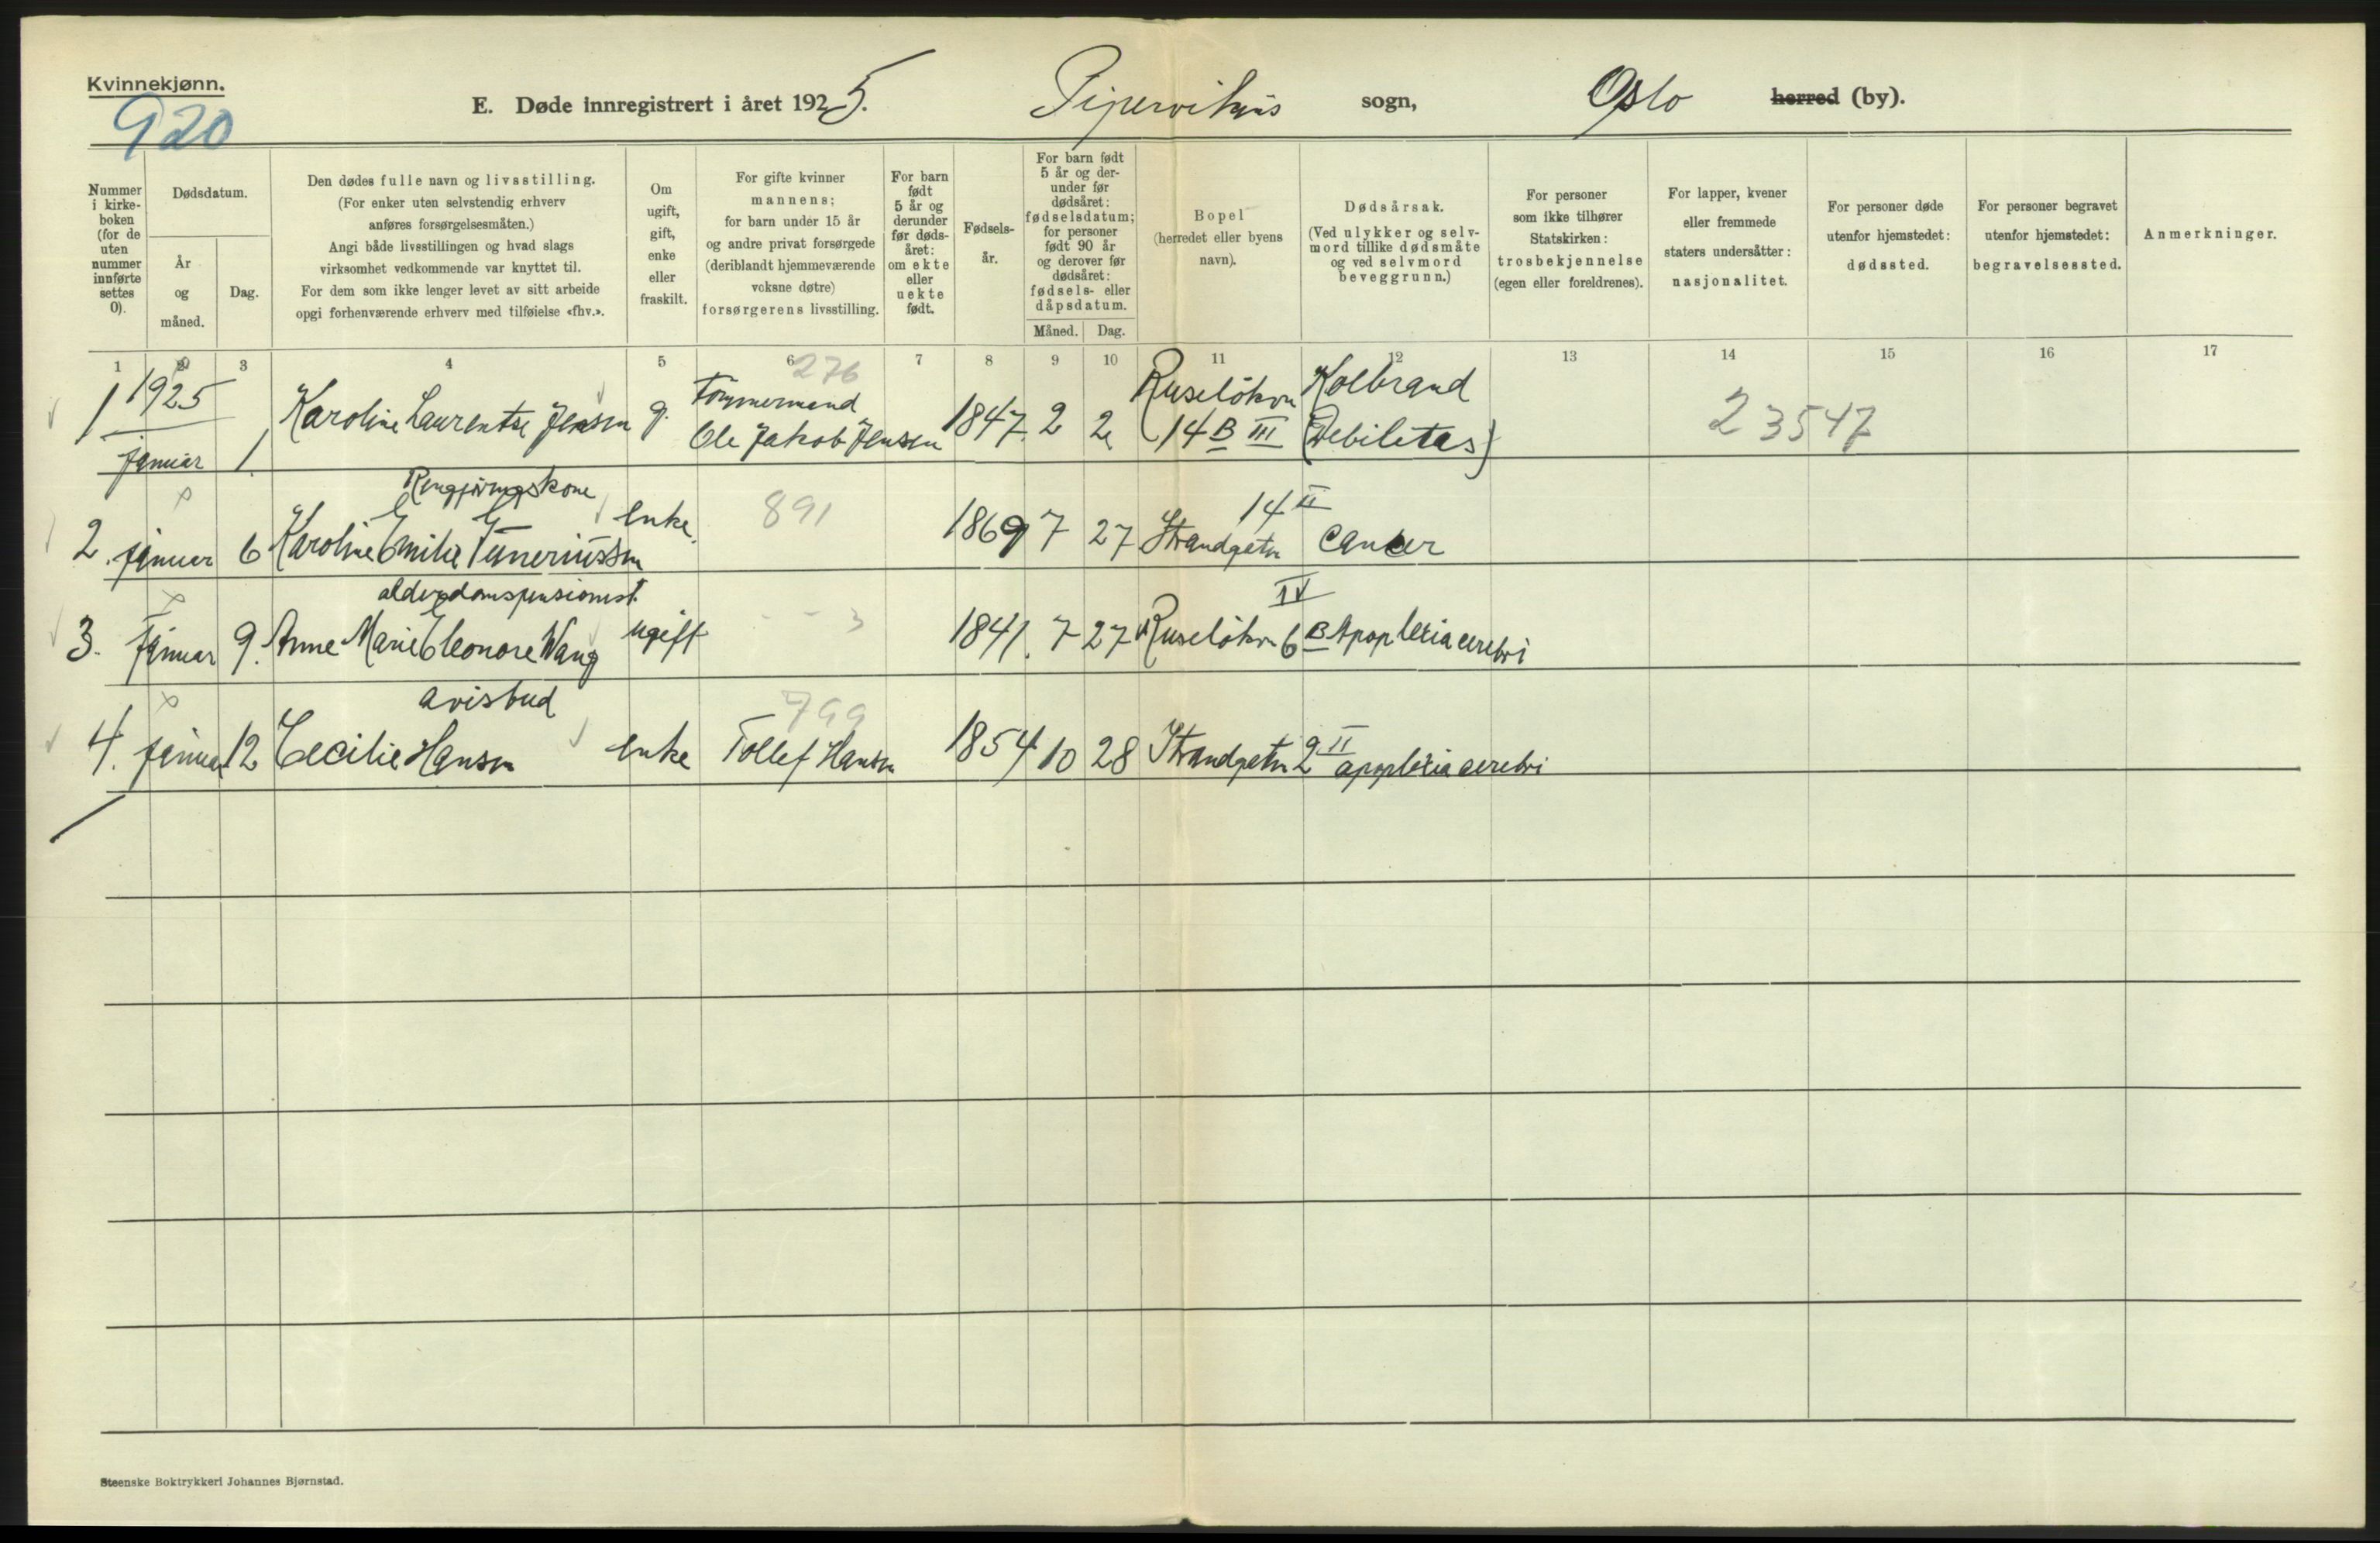 Kvinnekjønn.
920
E. Døde innregistrert i året 1925. Pipervikens sogn, Oslo herred (by).
Nummer i kirke- boken (for de uten nummer innførte settes 0).
Dødsdatum.
År og måned.
Dag.
Den dødes fulle navn og livsstilling.
(For enker uten selvstendig erhverv
anføres forsørgelsesmåten.)
Angi både livsstillingen og hvad slags
virksomhet vedkommende var knyttet til.
For dem som ikke lenger levet av sitt arbeide
opgi forhenværende erhverv med tilføielse «fhv.».
Om ugift, gift, enke eller fraskilt.
For gifte kvinner
mannens;
for barn under 15 år
og andre privat forsørgede
(deriblandt hjemmeværende
voksne døtre)
forsørgerens livsstilling.
For barn født 5 år og derunder før døds- året: om ekte eller uekte født.
Fødsels- år.
For barn født 5 år og der- under før dødsåret: fødselsdatum; for personer født 90 år og derover før dødsåret: fødsels- eller dåpsdatum.
Måned. Dag.
Bopel
(herredet eller byens
navn).
Dødsårsak.
(Ved ulykker og selv-
mord tillike dødsmåte
og ved selvmord
beveggrunn.)
For personer
som ikke tilhører
Statskirken:
trosbekjennelse
(egen eller foreldrenes).
For lapper, kvener
eller fremmede
staters undersåtter:
nasjonalitet.
For personer døde
utenfor hjemstedet:
dødssted.
For personer begravet
utenfor hjemstedet:
begravelsessted.
Anmerkninger.
1 2 3 4 5 6 7 8 9 10 11 12 13 14 15 16 17
276
1 1925 januar 1. Karoline Laurentse Jensen g. Tømmermand Ole Jakob Jensen 1847 2 2 Ruseløkvn 14 B III Kolbrand (Debilitas) 23547
Rengjøringskone
2. januar 6 Karoline Emilie enke. 891 1869 7 27 Strandgatn 14 II Cancer
alderdomspensionist
3. januar 9. Anne Marie Eleonore Wang ugift - - 3 1841. 7 27 Ruseløkvn 6 B IV Apoplexia cerebri
avisbud
799
4. januar 12 Cecilie Hansen enke Tollef Hansen 1854 10 28 Strandgatn 2 II apoplexia cerebri
Steenske Boktrykkeri Johannes Bjørnstad.